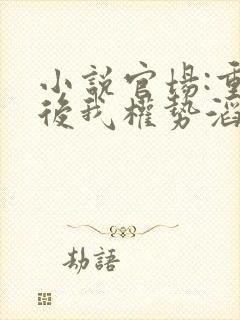 小說官場:重
後我權勢滔
劫語